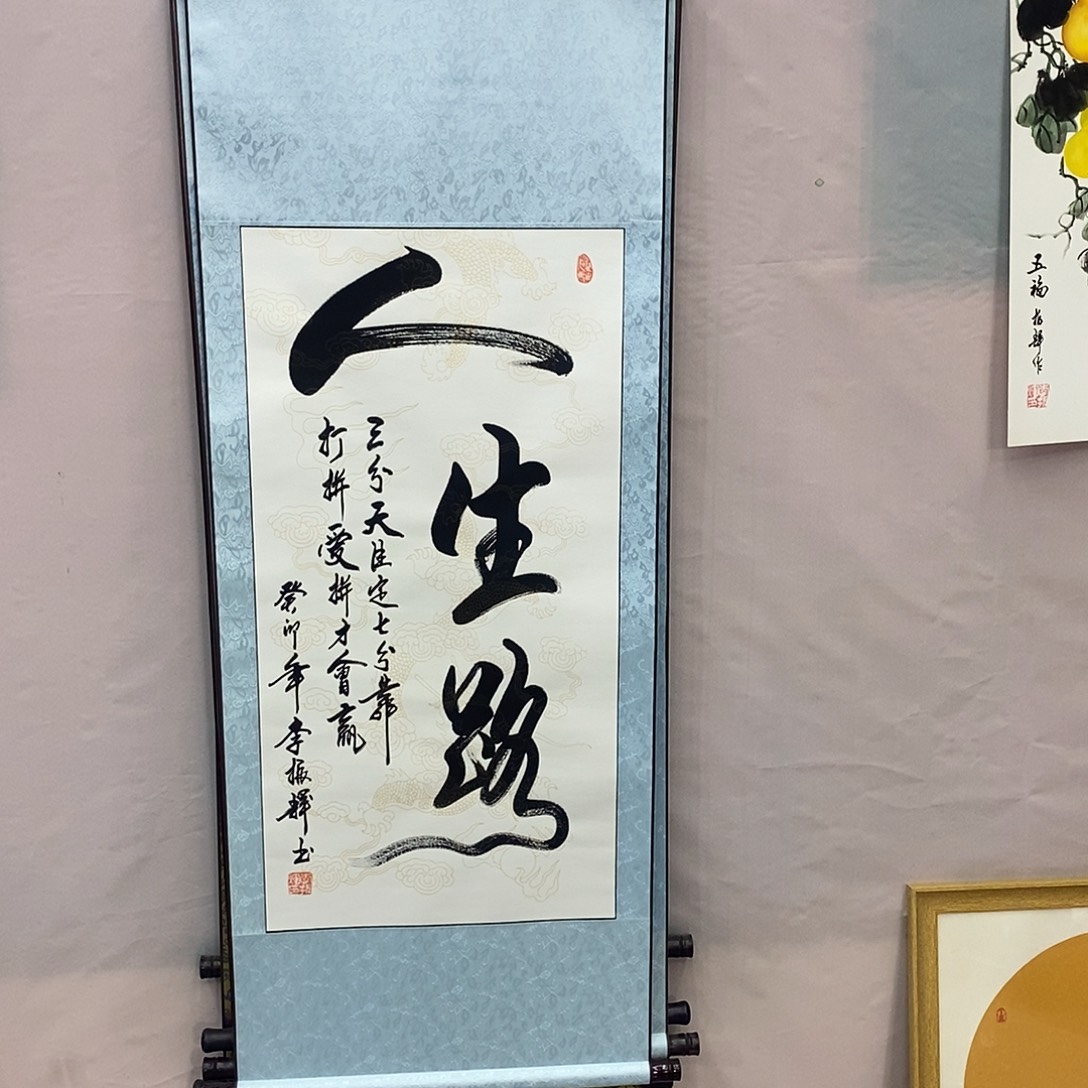 人生路
三分天注定七分靠
打拼愛拼才會贏
癸卯年李振輝书
五福 振輝作